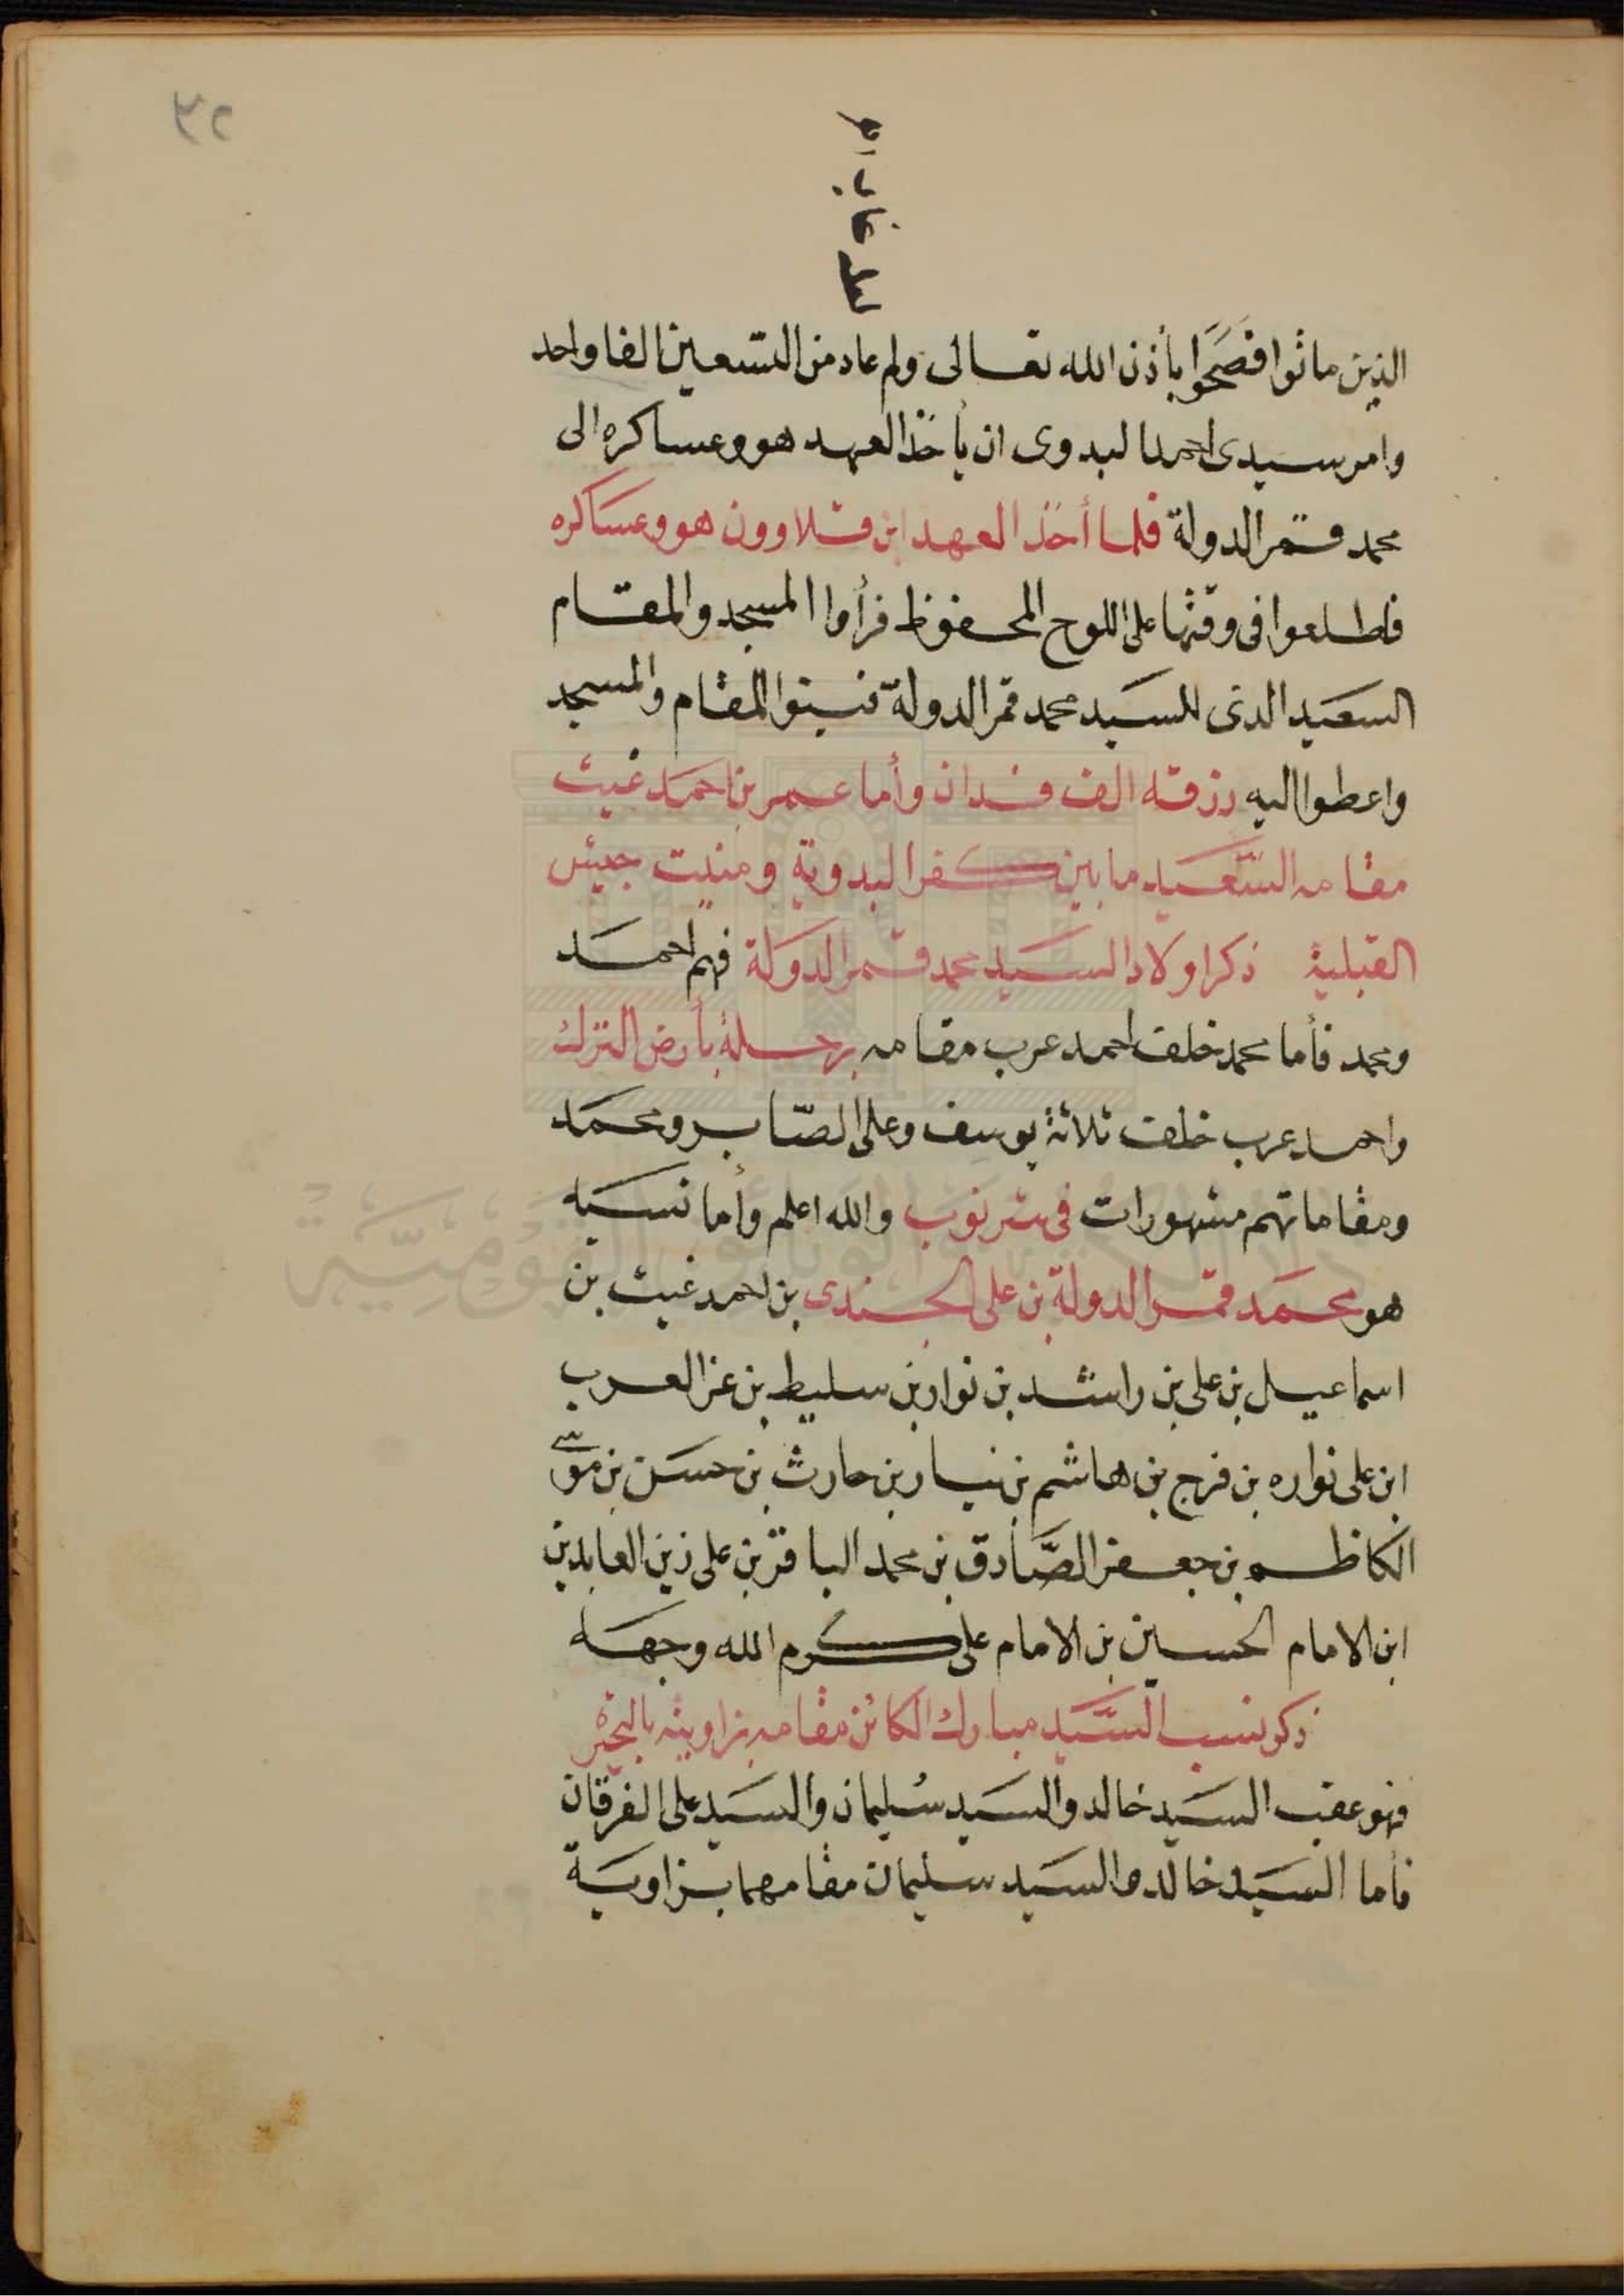 الذين ماتوا فصَحَوا بأذن الله تعالى ولم عاد من التسعين الفا واحد
وامر سيدى احمد البدوى ان يأخذ العهد هو وعساكره الى
محمد قمر الدولة فلما أخذ العهد ابن قلاوون هو وعساكره
فاطلعوا فى وقتها على اللوح المحفوظ فرأوا المسجد والمقام
السعيد الذى للسيد محمد قمر الدولة فبنوا المقام والمسجد
واعطوا اليه رزقه الف فدان وأما عمر بن احمد غيث
مقامه السَّعيد ما بين كفر البدوية ومنيت جيش
القبلية ذكر اولاد السيد محمد قمر الدولة فهم احمد
ومحمد فأما محمد خلف احمد عرب مقامه برحلة بأرض الترك
واحمد عرب خلف ثلاثة يوسف وعلى الصّابر ومحمد
ومقاماتهم مشهورات فى شرنوب والله اعلم وأما نسبه
هو محمد قمر الدولة بن على الجندى بن احمد غيث بن
اسماعيل بن على بن راشد بن نوار بن سليط بن عز العرب
ابن على نواره بن فرج بن هاشم بن نيسار بن حارث بن حسن بن موسى
الكاظم بن جعفر الصَّادق بن محمد الباقر بن على زين العابدين
ابن الامام الحسين بن الامام على كرم الله وجهه
ذكر نسب السَّيد مبارك الكائن مقامه بزاويته بالبحيره
فهو عقب السيد خالد والسيد سُليمان والسيد على الفرقان
فأما السيد خالد والسيد سليمان مقامهما بزاوية
دار الكتب والوثائق القومية